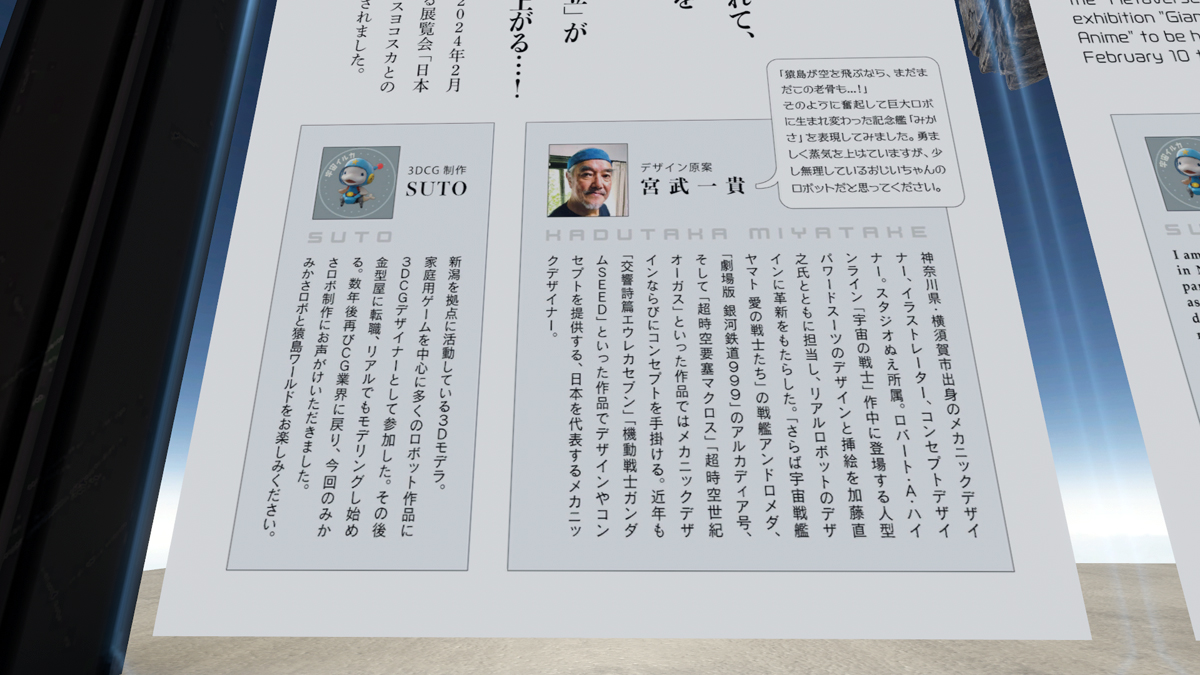 れて、
を
立」が
上がる…！
2024年2月
る展覧会「日本
スヨコスカとの
されました。
「猿島が空を飛ぶなら、まだま
だこの老骨も…!」
そのように奮起して巨大ロボ
に生まれ変わった記念艦「みか
さ」を表現してみました。勇ま
しく蒸気を上げていますが、少
し無理しているおじいちゃんの
ロボットだと思ってください。
デザイン原案
宮武一貴
KADUTAKA MIYATAKE
神奈川県・横須賀市出身のメカニックデザイ
ナー、イラストレーター、コンセプトデザイ
ナー。スタジオぬえ所属。ロバート・A・ハイ
ンライン「宇宙の戦士」作中に登場する人型
パワードスーツのデザインと挿絵を加藤直
之氏とともに担当し、リアルロボットのデザ
インに革新をもたらした。「さらば宇宙戦艦
ヤマト 愛の戦士たち」の戦艦アンドロメダ、
「劇場版 銀河鉄道999」のアルカディア号、
そして「超時空要塞マクロス」「超時空世紀
オーガス」といった作品ではメカニックデザ
インならびにコンセプトを手掛ける。近年も
「交響詩篇エウレカセブン」「機動戦士ガンダ
ムSEED」といった作品でデザインやコン
セプトを提供する、日本を代表するメカニッ
クデザイナー。
宇宙イルカ
3DCG 制作
SUTO
SUTO
新潟を拠点に活動している3Dモデラ。
家庭用ゲームを中心に多くのロボット作品に
3DCGデザイナーとして参加した。その後
金型屋に転職、リアルでもモデリングし始め
る。数年後再びCG業界に戻り、今回のみか
さロボ制作にお声がけいただきました。
みかさロボと猿島ワールドをお楽しみください。
exhibition "Gian
Anime" to be h
February 10 t
SU
I am
in N
par
as
d